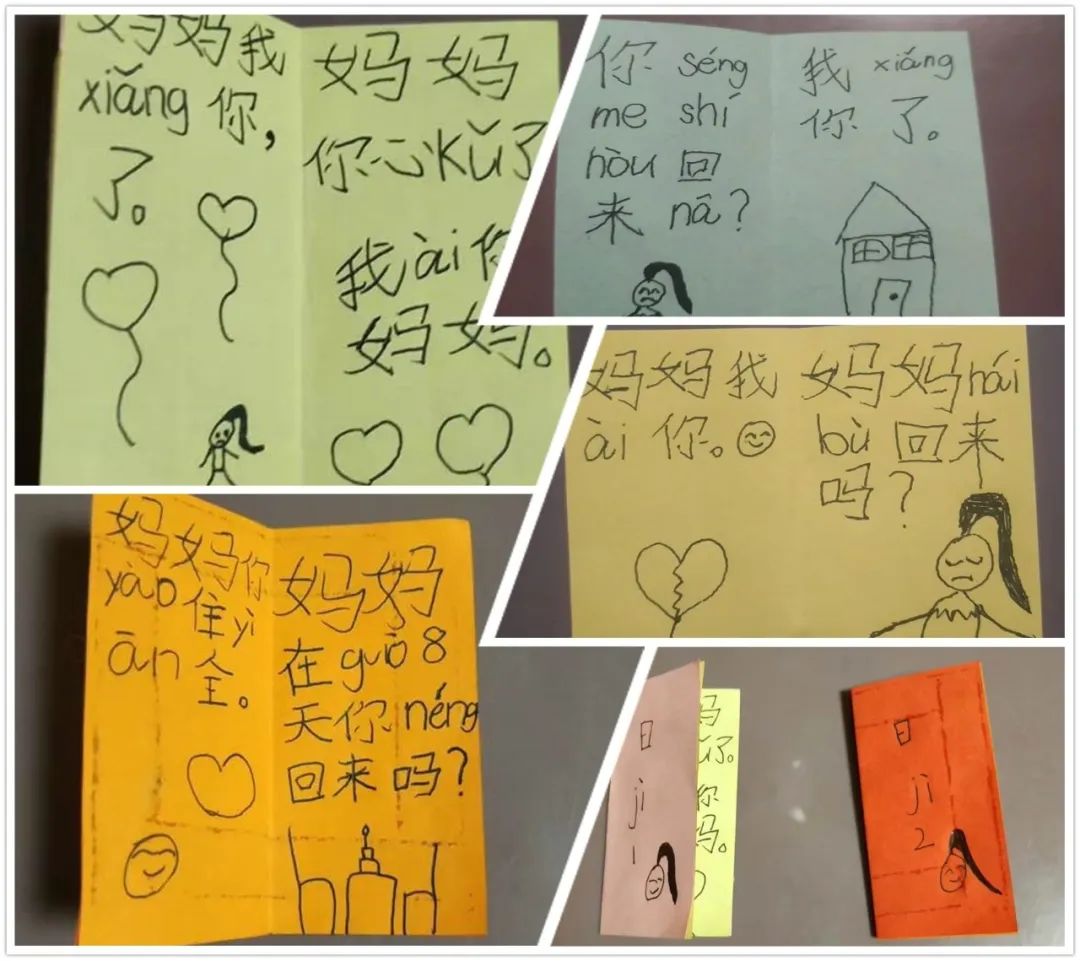 妈妈我
xiǎng 你,
了。
妈妈
你心kǔ了
我ài你
妈妈。
你 séng
me shí
hòu 回
来 nā?
我 xiǎng
你 了。
妈妈我
ài 你。
妈妈hái
bù 回来
吗?
妈妈你
yào 住yì
ān 全。
妈妈
在guò 8
天你néng
回来吗?
日
jì
1
妈
了。
你
妈。
日
jì
2